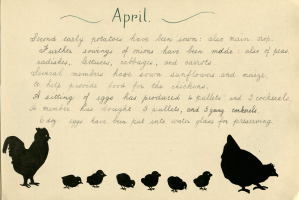 April.
Second early potatoes have been sown: also main crop.
Further sowings of onions have been made: also of peas,
radishes, lettuces, cabbages, and carrots.
Several members have sown sunflowers and maize,
to help provide food for the chickens.
A sitting of eggs has produced 4 pullets and 2 cockerels.
A member has bought 3 pullets, and 3 young cockerels.
eggs have been put into water glass for preserving.